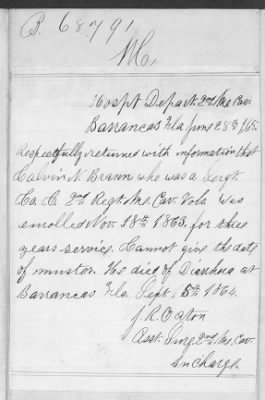 B. 68791
Me,
Hospt Depart. 2nd Me Cav
Barrancas Fla June 28th /65.
Respectfully returned with information that
Calvin N. Brann who was a Sergt.
Co. C 2nd Regt. Me. Cav. Vols was
enrolled Nov. 18th 1863. for three
years service. Cannot give the date
of muster. He died of Diarrhœa at
Barrancas Fla. Sept. 5th 1864.
J. R.
Asst. Surg. 2nd Me. Cav.
In Charge.